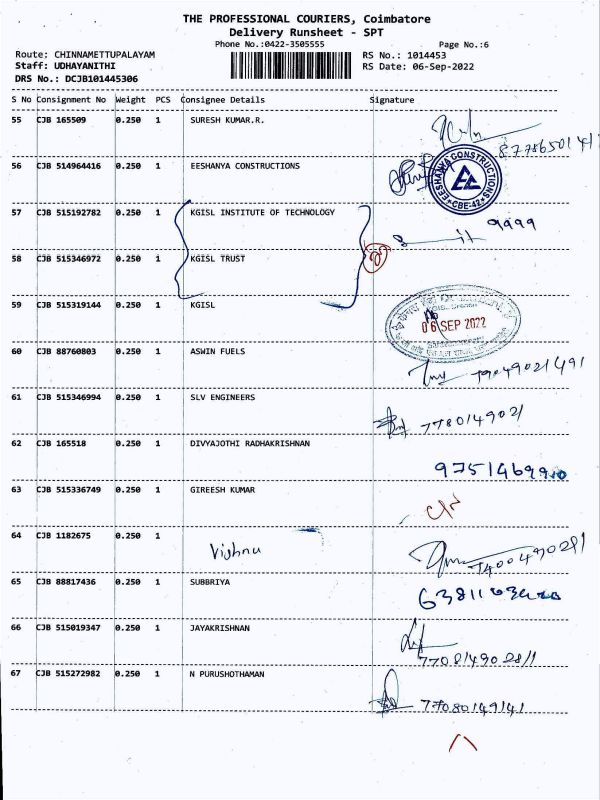 THE PROFESSIONAL COURIERS, Coimbatore
Delivery Runsheet - SPT
Phone No.:0422-3505555 Page No.:6
Route: CHINNAMETTUPALAYAM RS No.: 1014453
Staff: UDHAYANITHI RS Date: 06-Sep-2022
DRS No.: DCJB101445306
S No Consignment No Weight PCS Consignee Details Signature
55 CJB 165509 0.250 1 SURESH KUMAR.R.
56 CJB 514964416 0.250 1 EESHANYA CONSTRUCTIONS
EESHANYA CONSTRUCTIONS
CBE-42
57 CJB 515192782 0.250 1 KGISL INSTITUTE OF TECHNOLOGY
9999
58 CJB 515346972 0.250 1 KGISL TRUST
59 CJB 515319144 0.250 1 KGISL
06 SEP 2022
60 CJB 88760803 0.250 1 ASWIN FUELS
61 CJB 515346994 0.250 1 SLV ENGINEERS
62 CJB 165518 0.250 1 DIVYAJOTHI RADHAKRISHNAN
63 CJB 515336749 0.250 1 GIREESH KUMAR
64 CJB 1182675 0.250 1 Vishnu
65 CJB 88817436 0.250 1 SUBBRIYA
66 CJB 515019347 0.250 1 JAYAKRISHNAN
67 CJB 515272982 0.250 1 N PURUSHOTHAMAN
77080149141